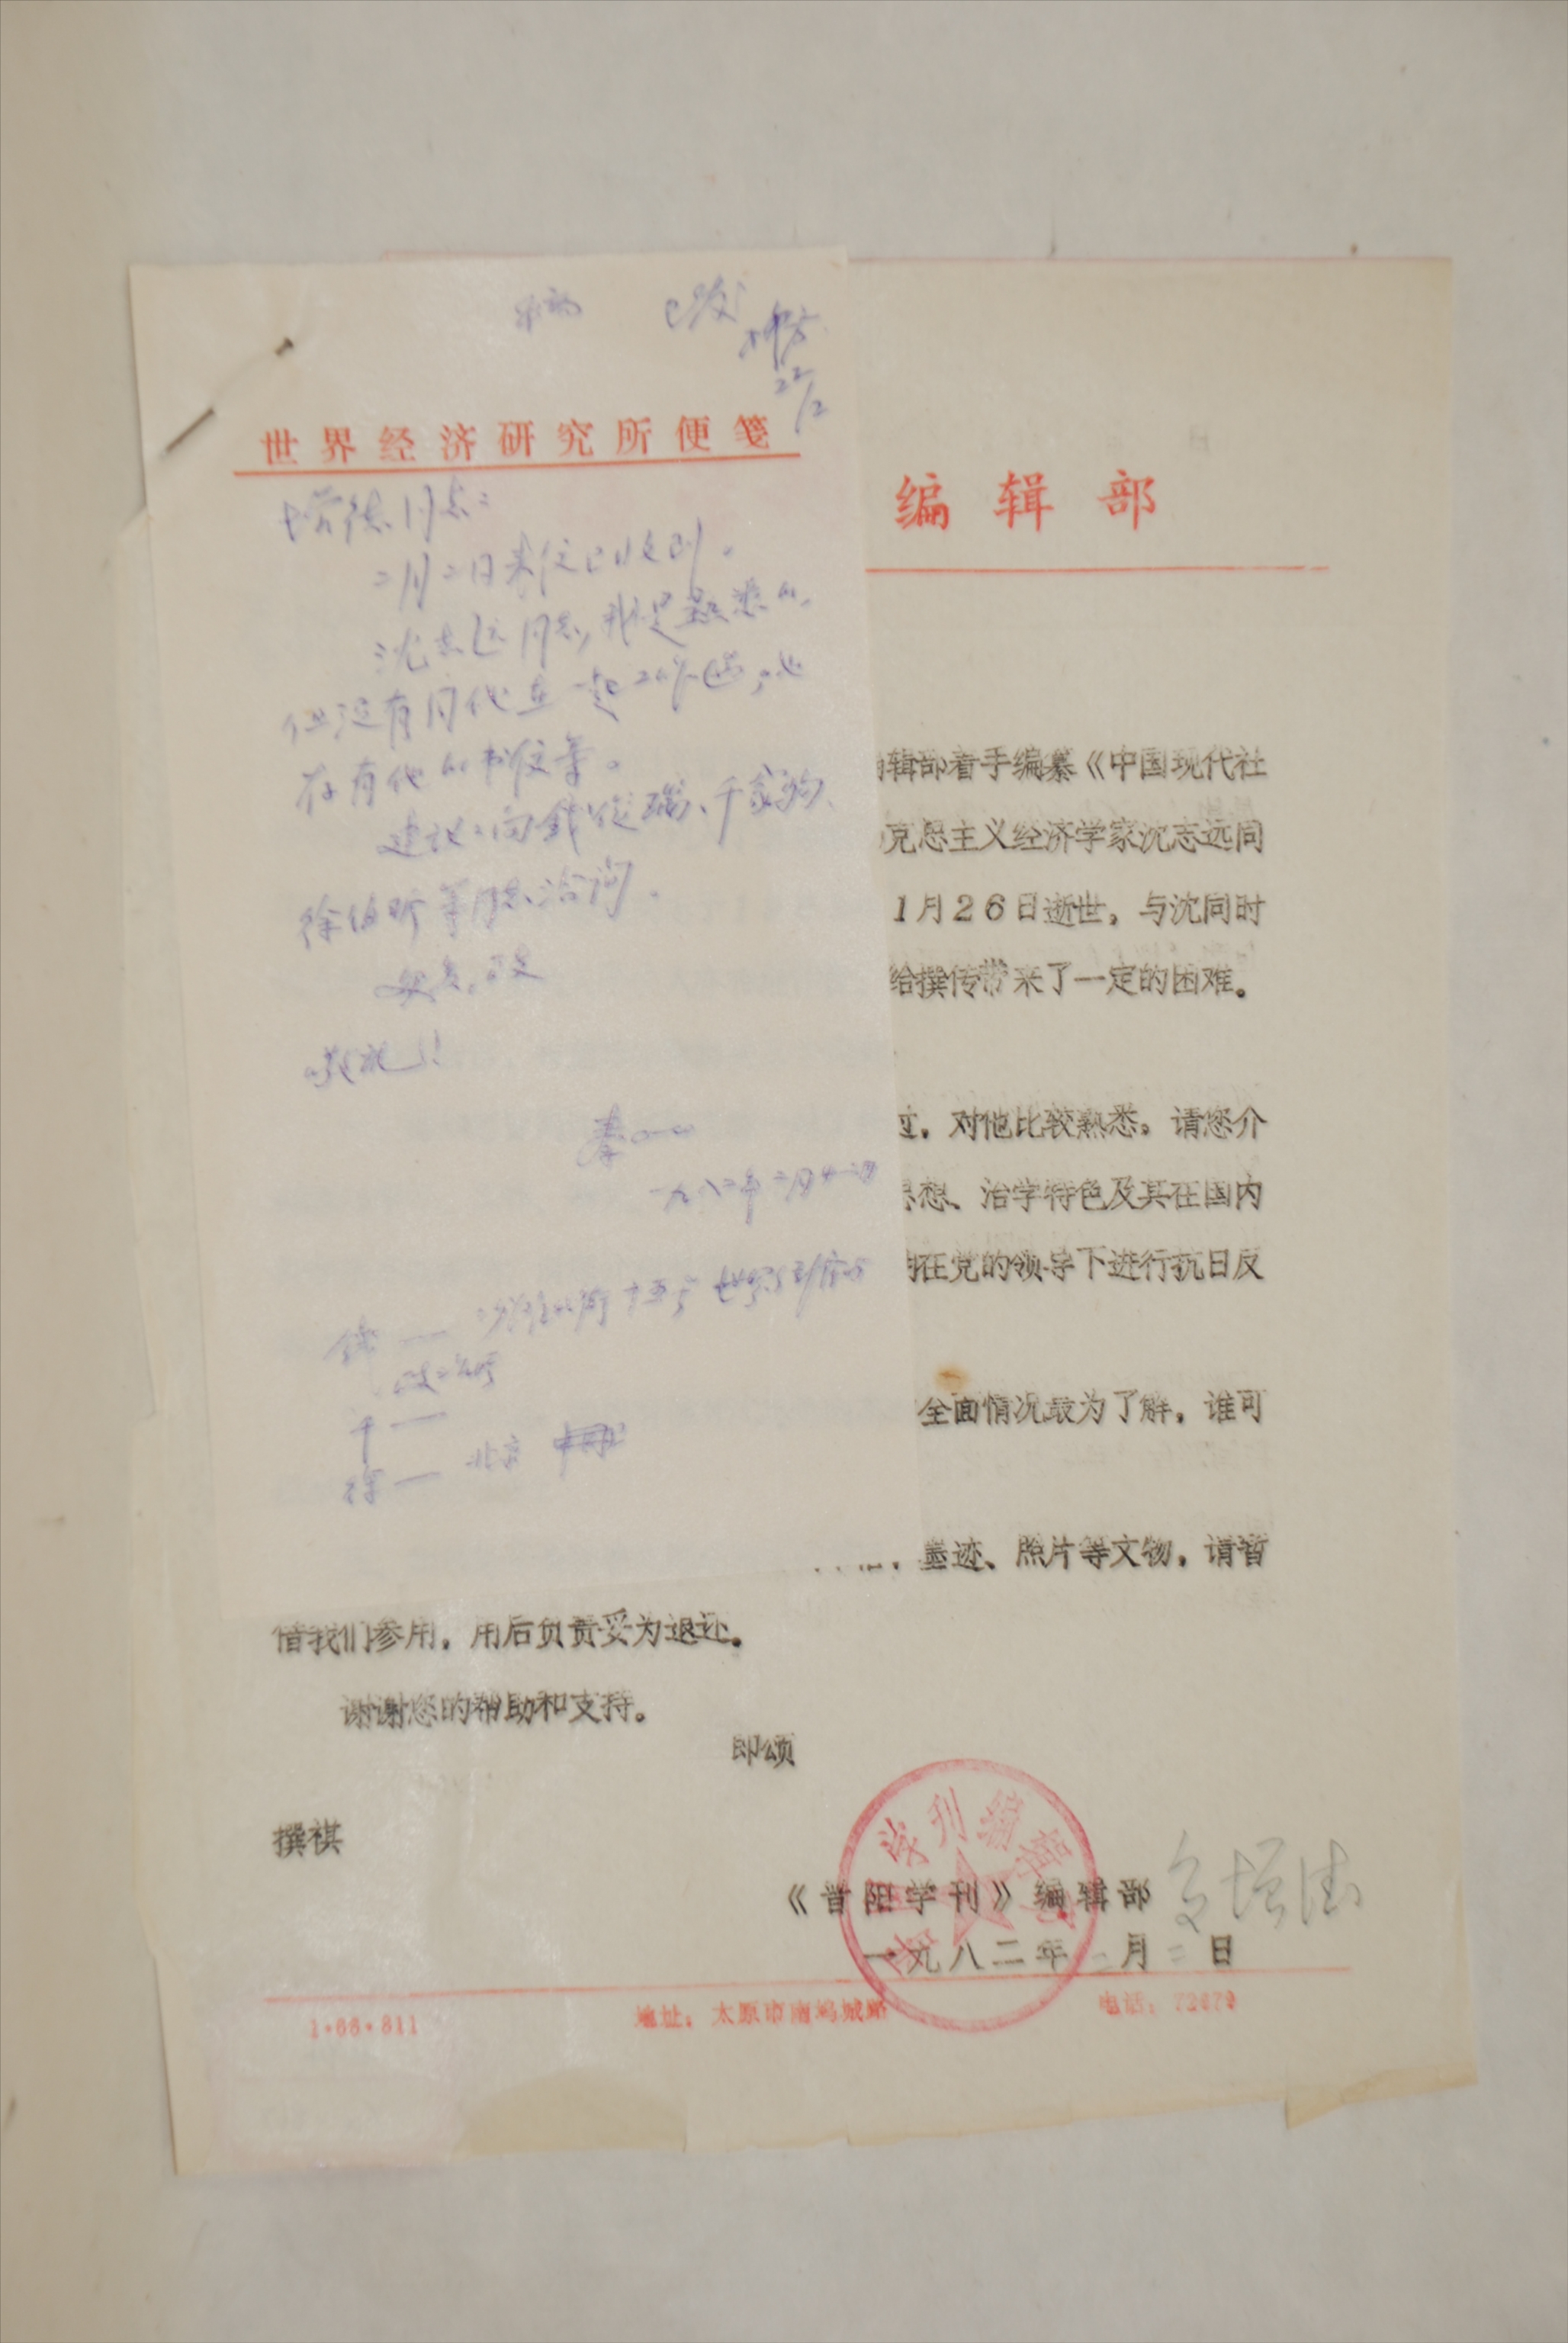 已发
22/2
世界经济研究所便笺
增德同志：
二月二日来信已收到。
沈志远同志，我是熟悉的，
但没有同他在一起工作过，也
存有他的书信等。
建议：向钱俊瑞、千家驹、
徐伯昕等同志洽询。
敬礼！
一九八二年二月
钱——
千——
徐——北京
编辑部
辑部着手编纂《中国现代社
克思主义经济学家沈志远同
1月26日逝世，与沈同时
给撰传带来了一定的困难。
过，对他比较熟悉。请您介
思想、治学特色及其在国内
在党的领导下进行抗日反
全面情况最为了解，谁可
墨迹、照片等文物，请暂
借我们参用，用后负责妥为退还。
谢谢您的帮助和支持。
即颂
撰祺
学刊编辑部
《晋阳学刊》编辑部 增德
一九八二年二月二日
1·66·811 地址：太原市南坞城路 电话：72679